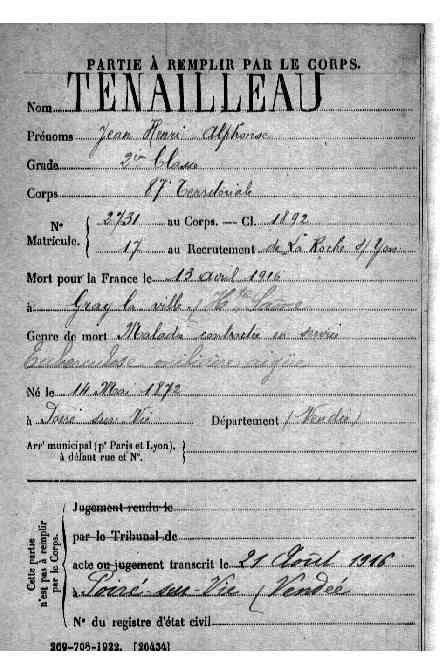 PARTIE À REMPLIR PAR LE CORPS.
Nom TENAILLEAU
Prénoms Jean Henri Alphonse
Grade 2me Classe
Corps 87e Territoriale
N° Matricule. 2731 au Corps. — Cl. 1892
17 au Recrutement de La Roche s/ Yon
Mort pour la France le 13 avril 1916
à Gray la ville (Hte Saône)
Genre de mort Maladie contractée en service
Tuberculose miliaire aigüe
Né le 14 Mai 1872
à Poiré sur Vie Département (Vendée)
Arrt municipal (pr Paris et Lyon), à défaut rue et N°.
Cette partie n'est pas à remplir par le Corps.
Jugement rendu le
par le Tribunal de
acte ou jugement transcrit le 21 Août 1916
à Poiré-sur-Vie (Vendée)
N° du registre d'état civil
269-708-1922. [26434]